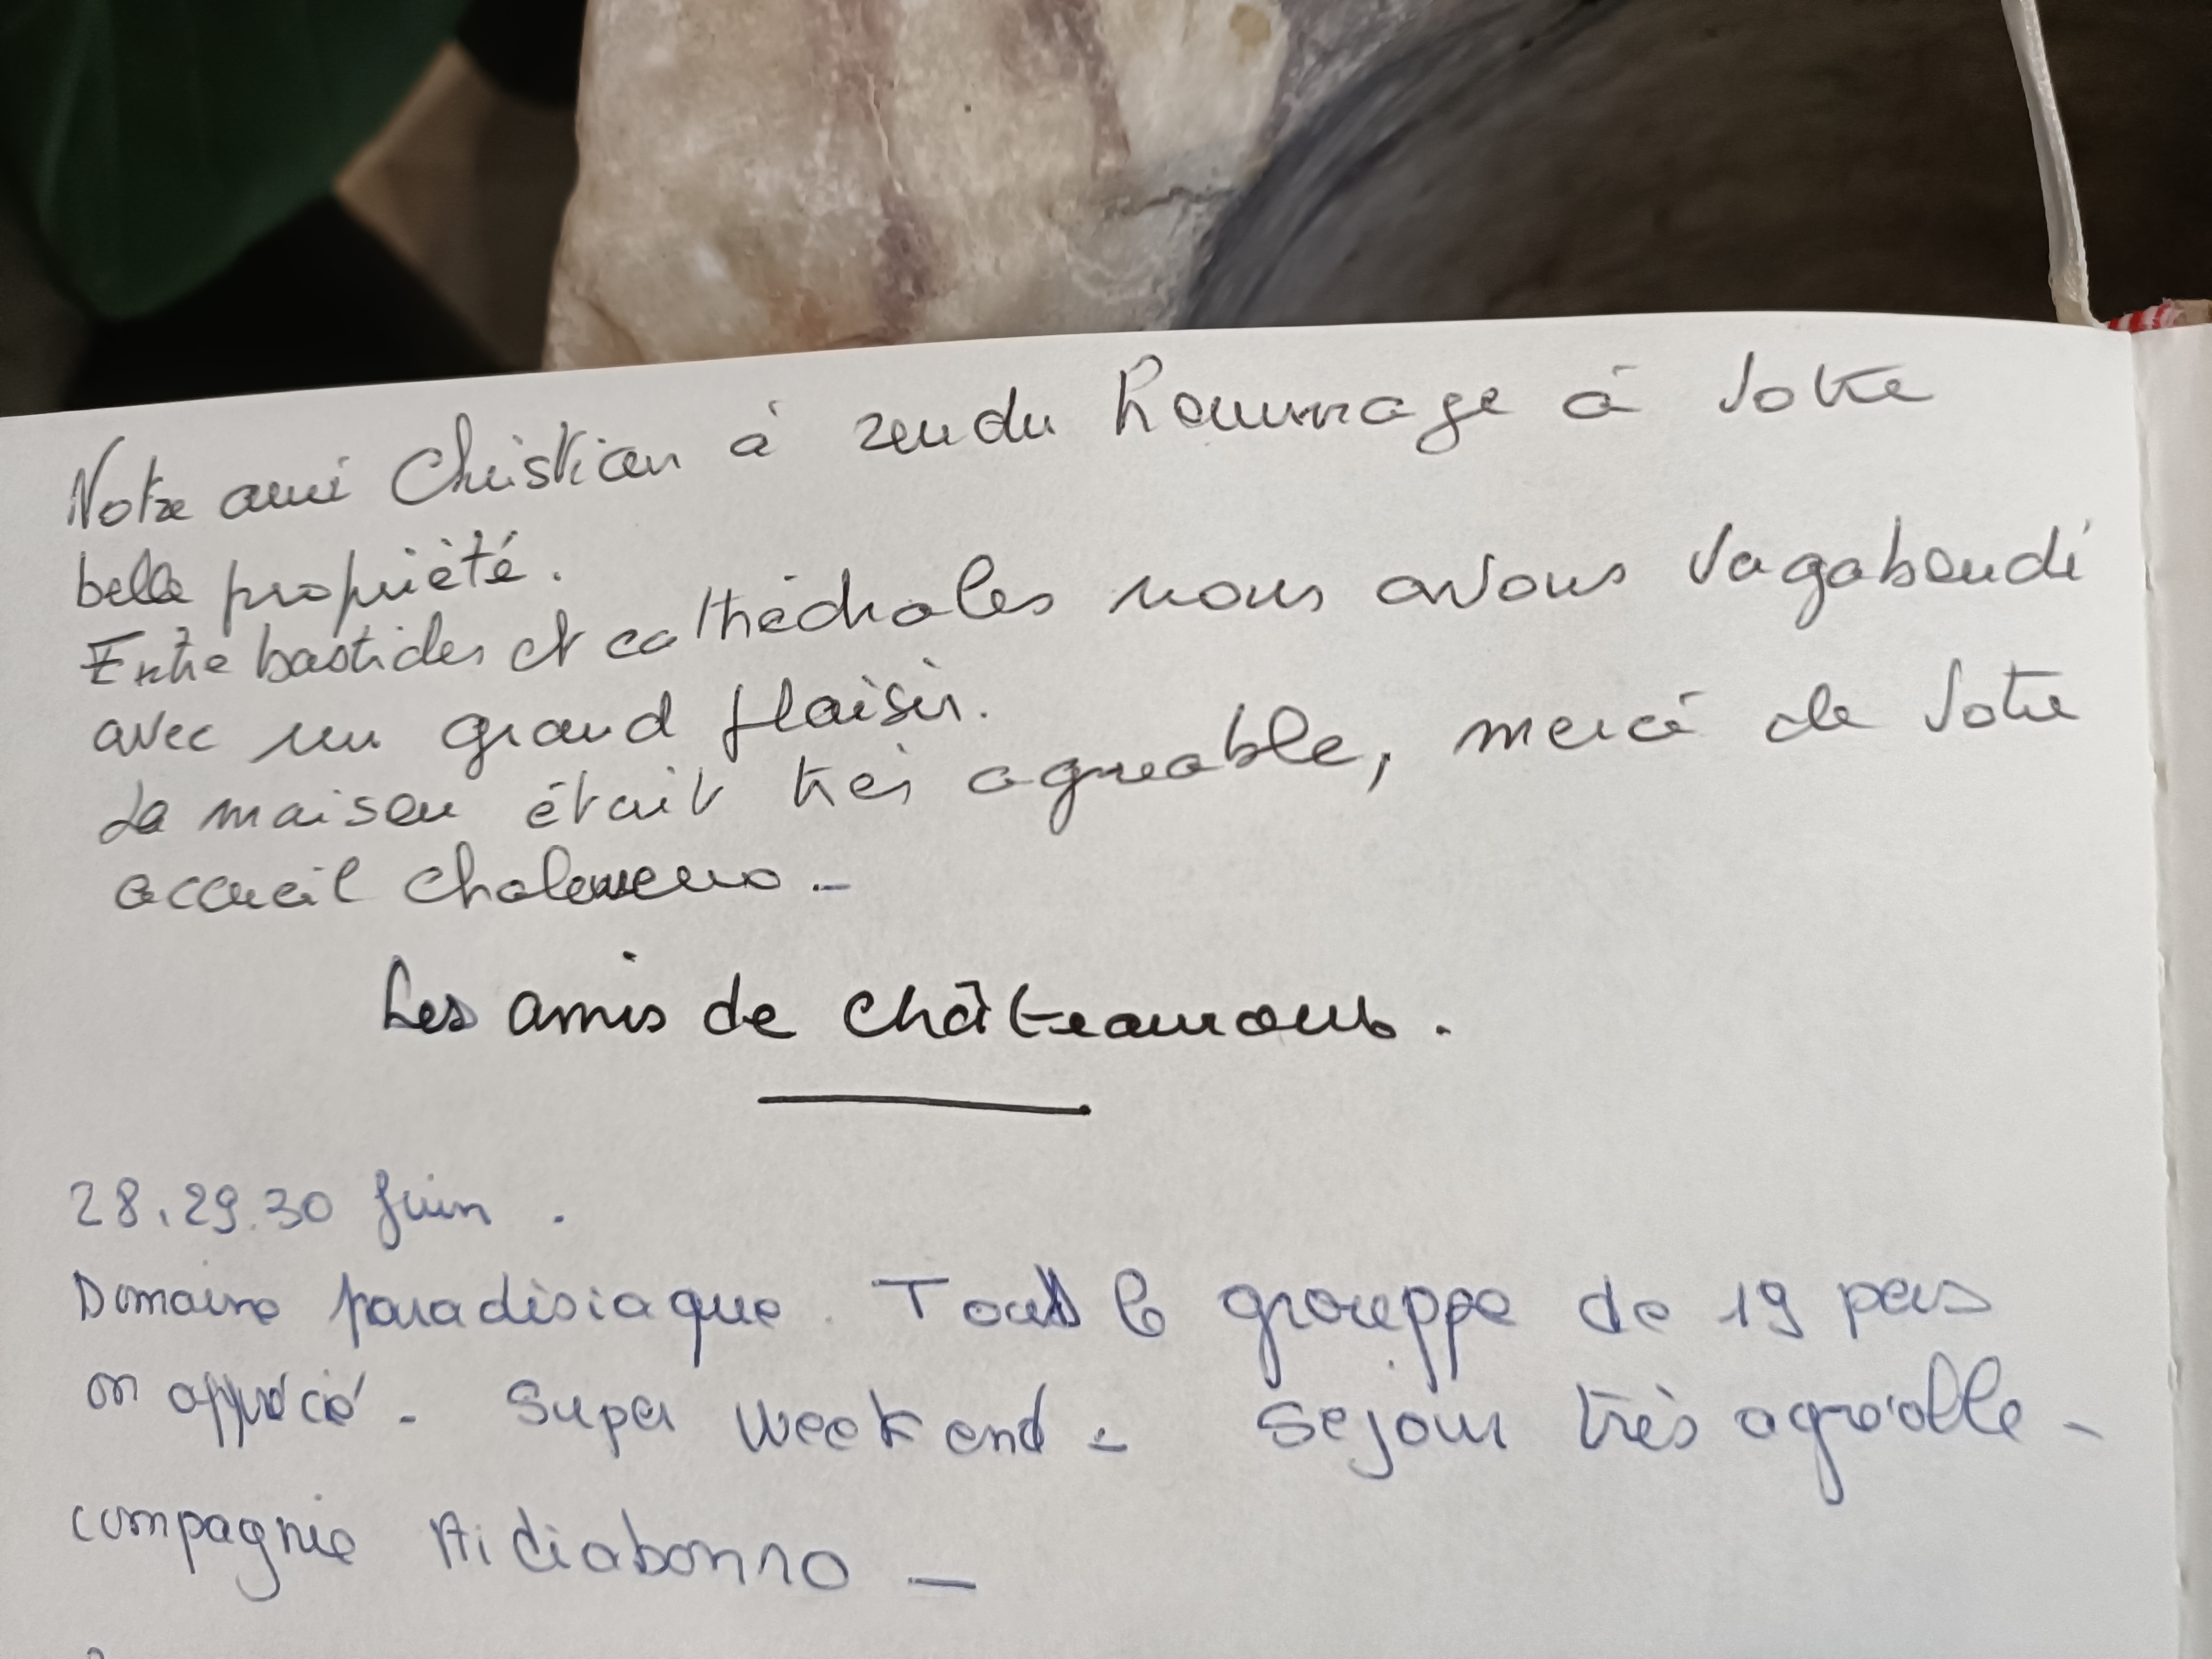 Notre ami Christian à rendu hommage à votre
belle propriété.
Entre bastides et cathédrales nous avons vagabondé
avec un grand plaisir.
La maison était très agreable, merci de votre
accueil chaleureux -
Les amis de
28.29.30 Juin .
Domaine paradisiaque. Tout le grouppe de 19 pers
on apprécié - Super Week end - Sejour très agréable -
compagnie